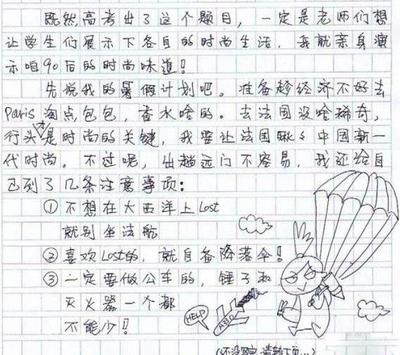 既然高考出了这个题目，一定是老师们想
让学生们展示下各自的时尚生活，我就亲身演
示咱90后的时尚味道！
先说我的暑假计划吧。准备趁经济不好去
Paris淘点包包，香水啥的。去法国没啥稀奇，
行头是时尚的关键，我要让法国瞅瞅中国新一
代时尚。不过呢，出趟远门不容易，我还给自
己列了几条注意事项：
①不想在大西洋上Lost
就别坐法航
②喜欢Lost的，就自备降落伞！
③一定要做公车的，锤子和
灭火器一个都
不能少！！
HELP
(还没写完，请翻下页...)